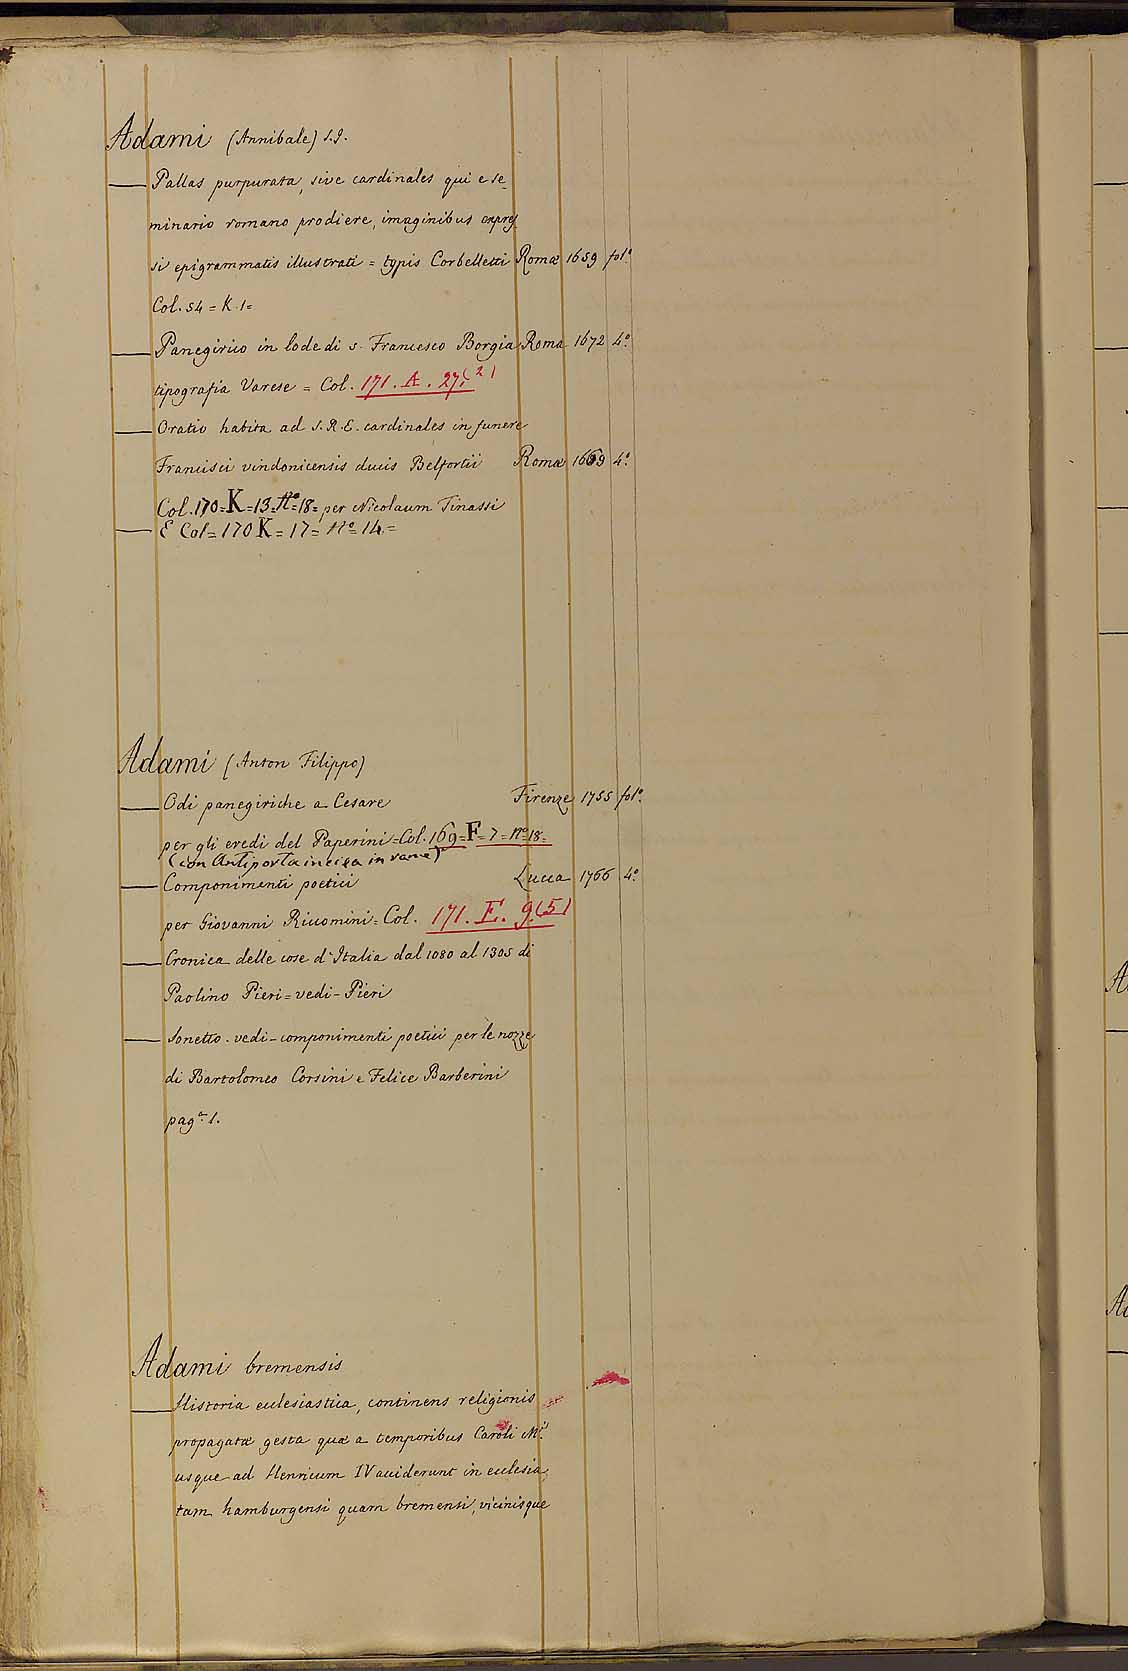 Adami (Annibale) S.J.
— Pallas purpurata, sive cardinales qui e se_
minario romano prodiere, imaginibus expres
si epigrammatis illustrati = typis Corbelletti Romæ 1659 fol.º
Col. 54 = K. 1 =
— Panegirico in lode di s. Francesco Borgia Roma 1672 4.º
tipografia Varese = Col. 171. A. 27.(2)
— Oratio habita ad S.R.E. cardinales in funere
Francisci vindonicensis ducis Belfortii Romæ 1669 4.º
Col. 170=K=13=Nº=18= per Nicolaum Tinassi
— E Col=170 K=17=Nº=14=
Adami (Anton Filippo)
— Odi panegiriche a Cesare Firenze 1755 fol.º
per gli eredi del Paperini=Col. 169=F=7=Nº18=
(con Antiporta incisa in rame)
— Componimenti poetici Lucca 1766 4.º
per Giovanni Riccomini=Col. 171. E. 9.(5)
— Cronica delle cose d'Italia dal 1080 al 1305 di
Paolino Pieri=vedi-Pieri
— Sonetto. vedi-componimenti poetici per le nozze
di Bartolomeo Corsini e Felice Barberini
pag.ª 1.
Adami bremensis
— Historia ecclesiastica, continens religionis
propagatæ gesta quæ a temporibus Caroli M.
usque ad Henricum IV acciderunt in ecclesia
tam hamburgensi quam bremensi, vicinisque